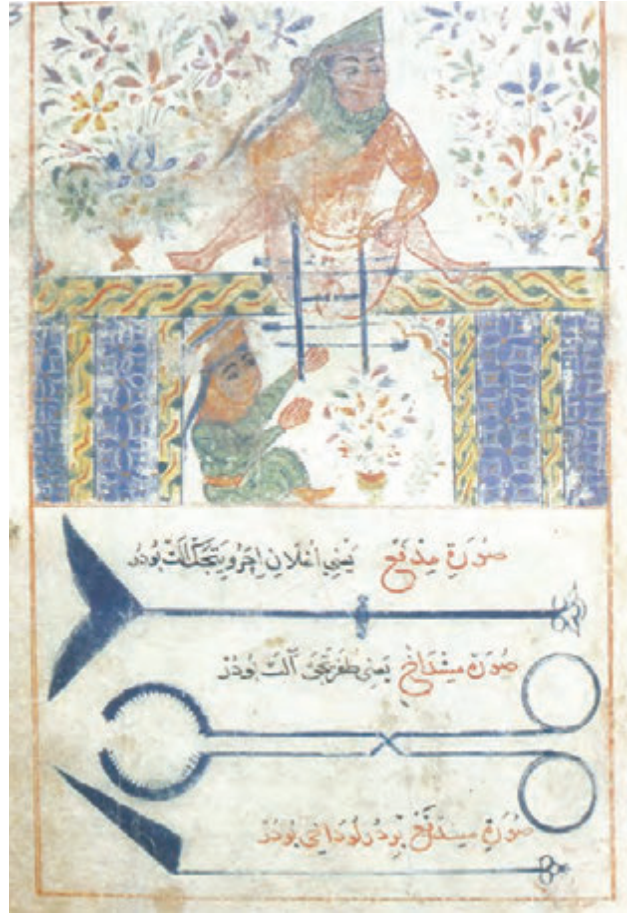 صُورَةِ مِدْفَعْ يَعْنِي اُغْلَانِ اِچَرُو يِتَجَكْ اٰلَتْ بُودُرْ
صُورَةِ مِشْدَاخْ يَعْنِي اٰلَتْ بُودُرْ
صُورَةِ مِشْدَاخْ بِرْ دُرْلُو دَاخِي بُودُرْ